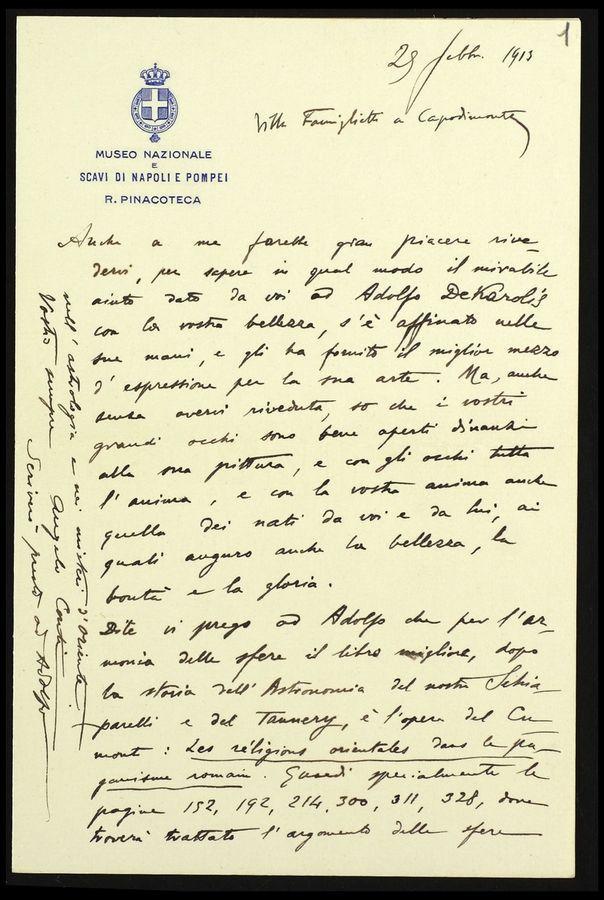 1
29 febbr. 1913
Villa Famiglietti a Capodimonte
MUSEO NAZIONALE
E
SCAVI DI NAPOLI E POMPEI
R. PINACOTECA
Anche a me farebbe gran piacere rive-
dervi, per sapere in qual modo il mirabile
aiuto dato da voi ad Adolfo DeKarolis
con la vostra bellezza, s'è affinato nelle
sue mani, e gli ha fornito il miglior mezzo
d'espressione per la sua arte. Ma, anche
senza avervi riveduta, so che i vostri
grandi occhi sono bene aperti dinanzi
alla sua pittura, e con gli occhi tutta
l'anima, e con la vostra anima anche
quella dei nati da voi e da lui, ai
quali auguro anche la bellezza, la
bontà e la gloria.
Dite vi prego ad Adolfo che per l'ar-
monia delle sfere il libro migliore, dopo
la storia dell'Astronomia del nostro Schia-
parelli e del Tannery, è l'opera del Cu-
mont: Les religions orientales dans le pa-
ganisme romain. Guardi specialmente le
pagine 152, 192, 214, 300, 311, 328, dove
troverà trattato l'argomento delle sfere
nell'astrologia e nei misteri d'Oriente.
Vostro sempre Angelo Conti
Scriverò presto ad Adolfo